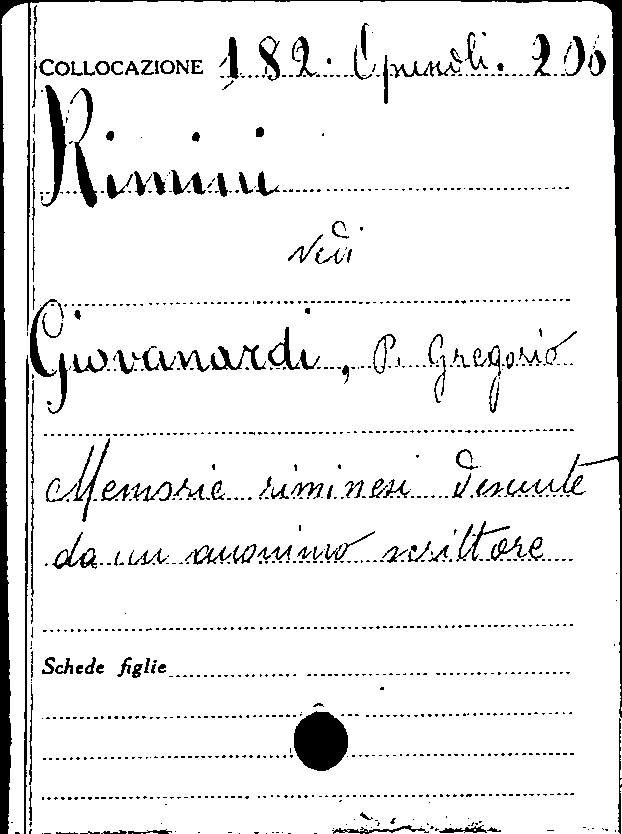 COLLOCAZIONE 182. Opuscoli. 206
Rimini
vedi
Giovanardi, P. Gregorio
Memorie riminesi desunte
da un anonimo scrittore
Schede figlie